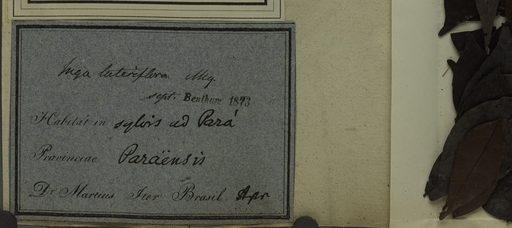 Inga lateriflora Miq.
sept. Benthum 1873
Habitat in sylvis ad Pará
Provinciae Paraënsis
Dr. Martius Iter Brasil. Apr